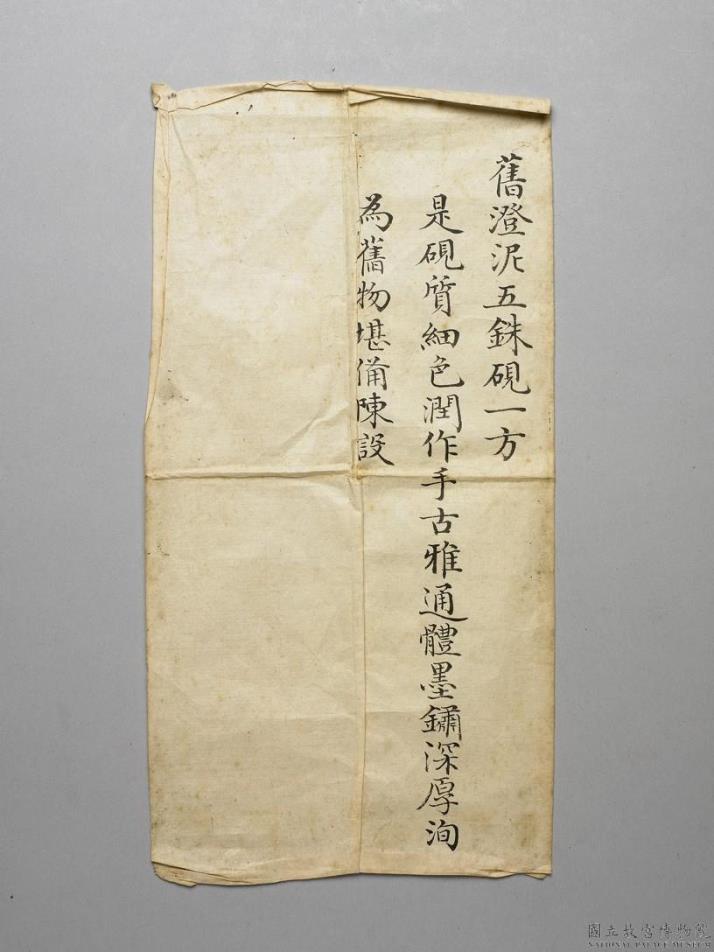 舊澄泥五銖硯一方
是硯質細色潤作手古雅通體墨鏽深厚洵
為舊物堪備陳設
國立故宮博物院
NATIONAL PALACE MUSEUM